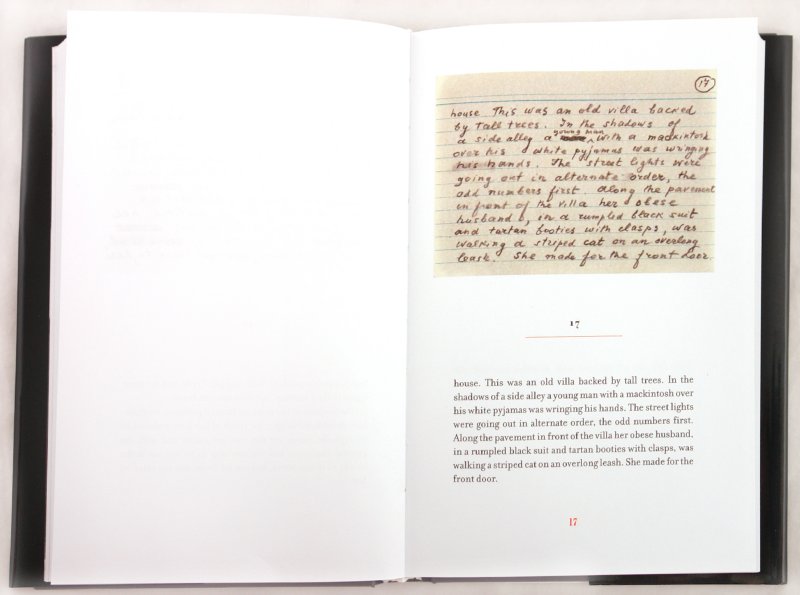 17
house. This was an old villa backed
by tall trees. In the shadows of
a side alley a young man with a mackintosh
over his white pyjamas was wringing
his hands. The street lights were
going out in alternate order, the
odd numbers first. Along the pavement
in front of the villa her obese
husband, in a rumpled black suit
and tartan booties with clasps, was
walking a striped cat on an overlong
leash. She made for the front door.
17
house. This was an old villa backed by tall trees. In the
shadows of a side alley a young man with a mackintosh over
his white pyjamas was wringing his hands. The street lights
were going out in alternate order, the odd numbers first.
Along the pavement in front of the villa her obese husband,
in a rumpled black suit and tartan booties with clasps, was
walking a striped cat on an overlong leash. She made for the
front door.
17